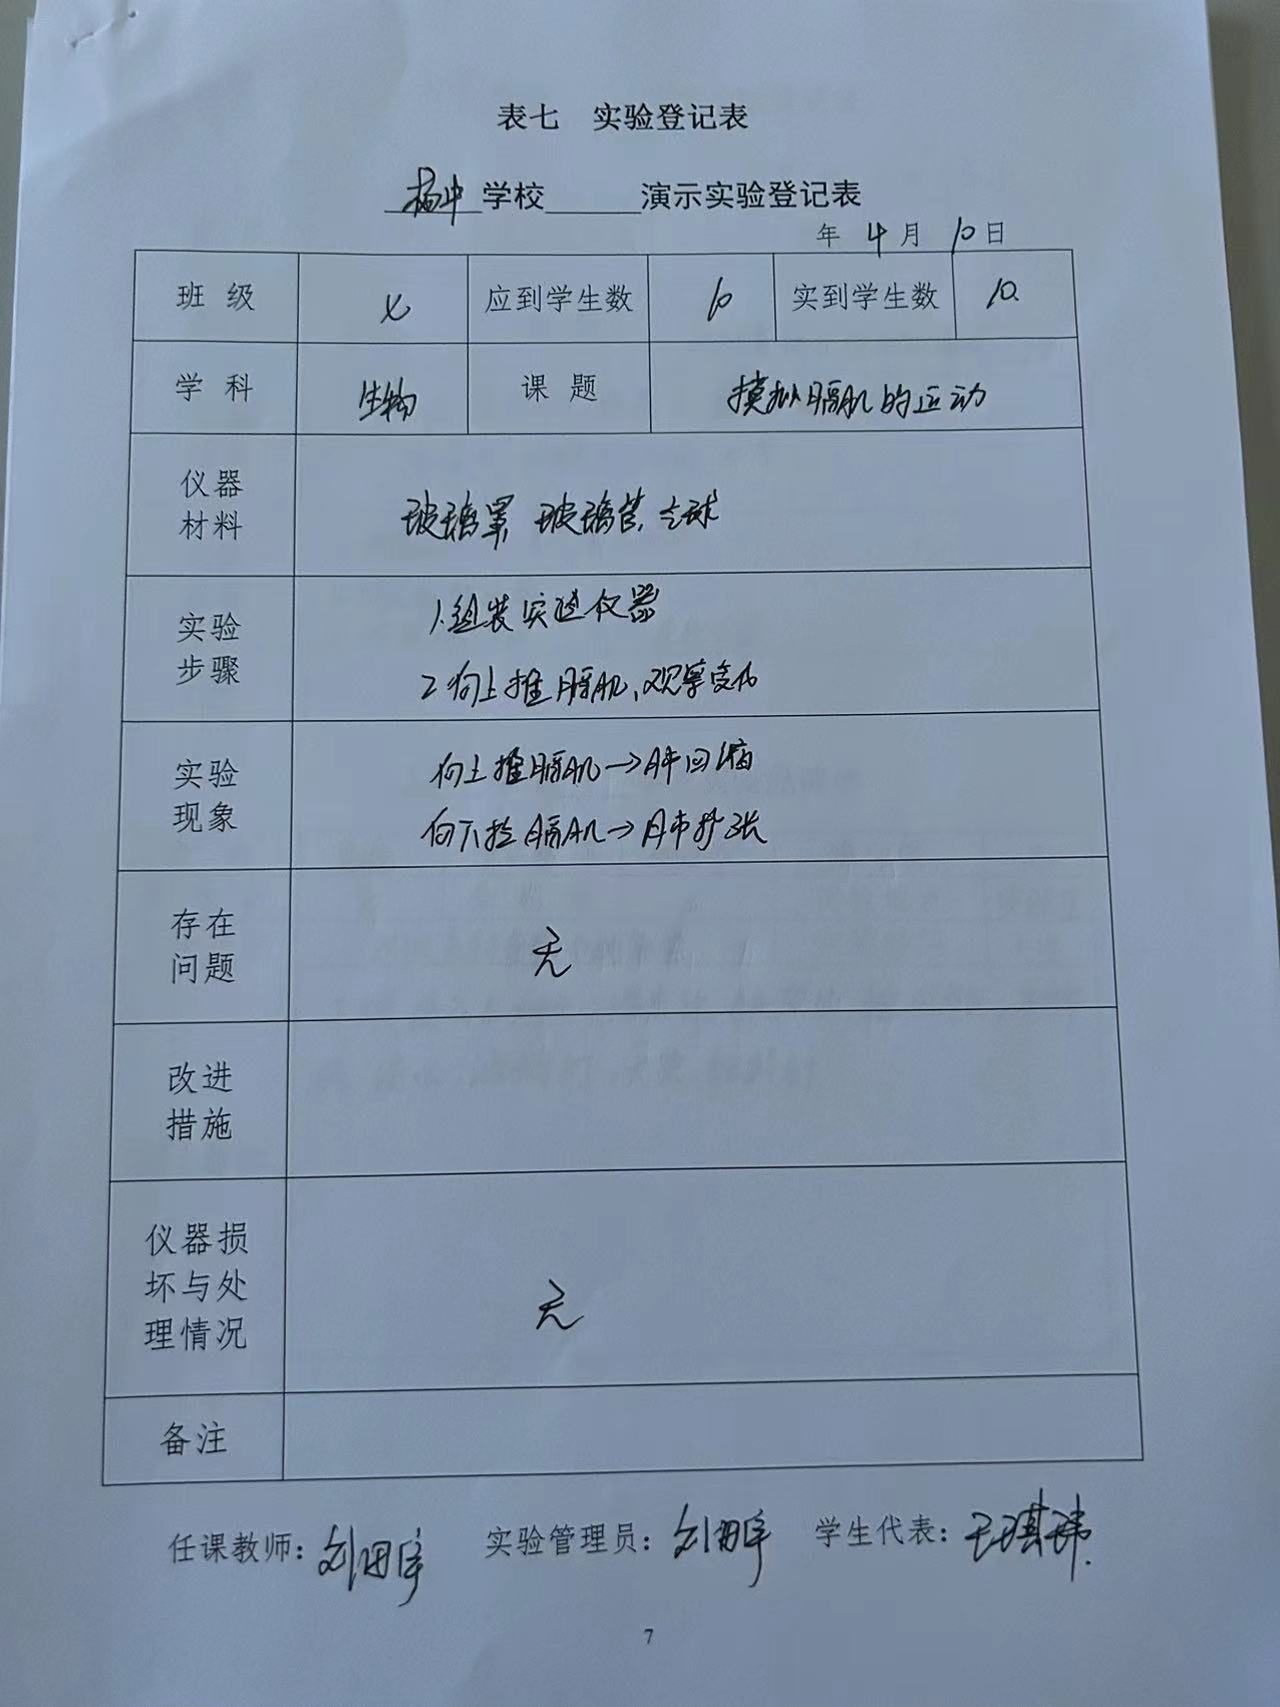 表七 实验登记表
杨中学校______演示实验登记表
年 4月 10日
班级 七 应到学生数 10 实到学生数 10.
学科 生物 课题 模拟膈肌的运动
仪器材料 玻璃罩, 玻璃管, 气球
实验步骤 1.组装实验仪器
2 向上推膈肌,观察变化
实验现象 向上推膈肌→肺回缩
向下拉膈肌→肺扩张
存在问题 无
改进措施
仪器损坏与处理情况 无
备注
任课教师: 刘田宇 实验管理员: 刘田宇 学生代表: 王琪玮.
7